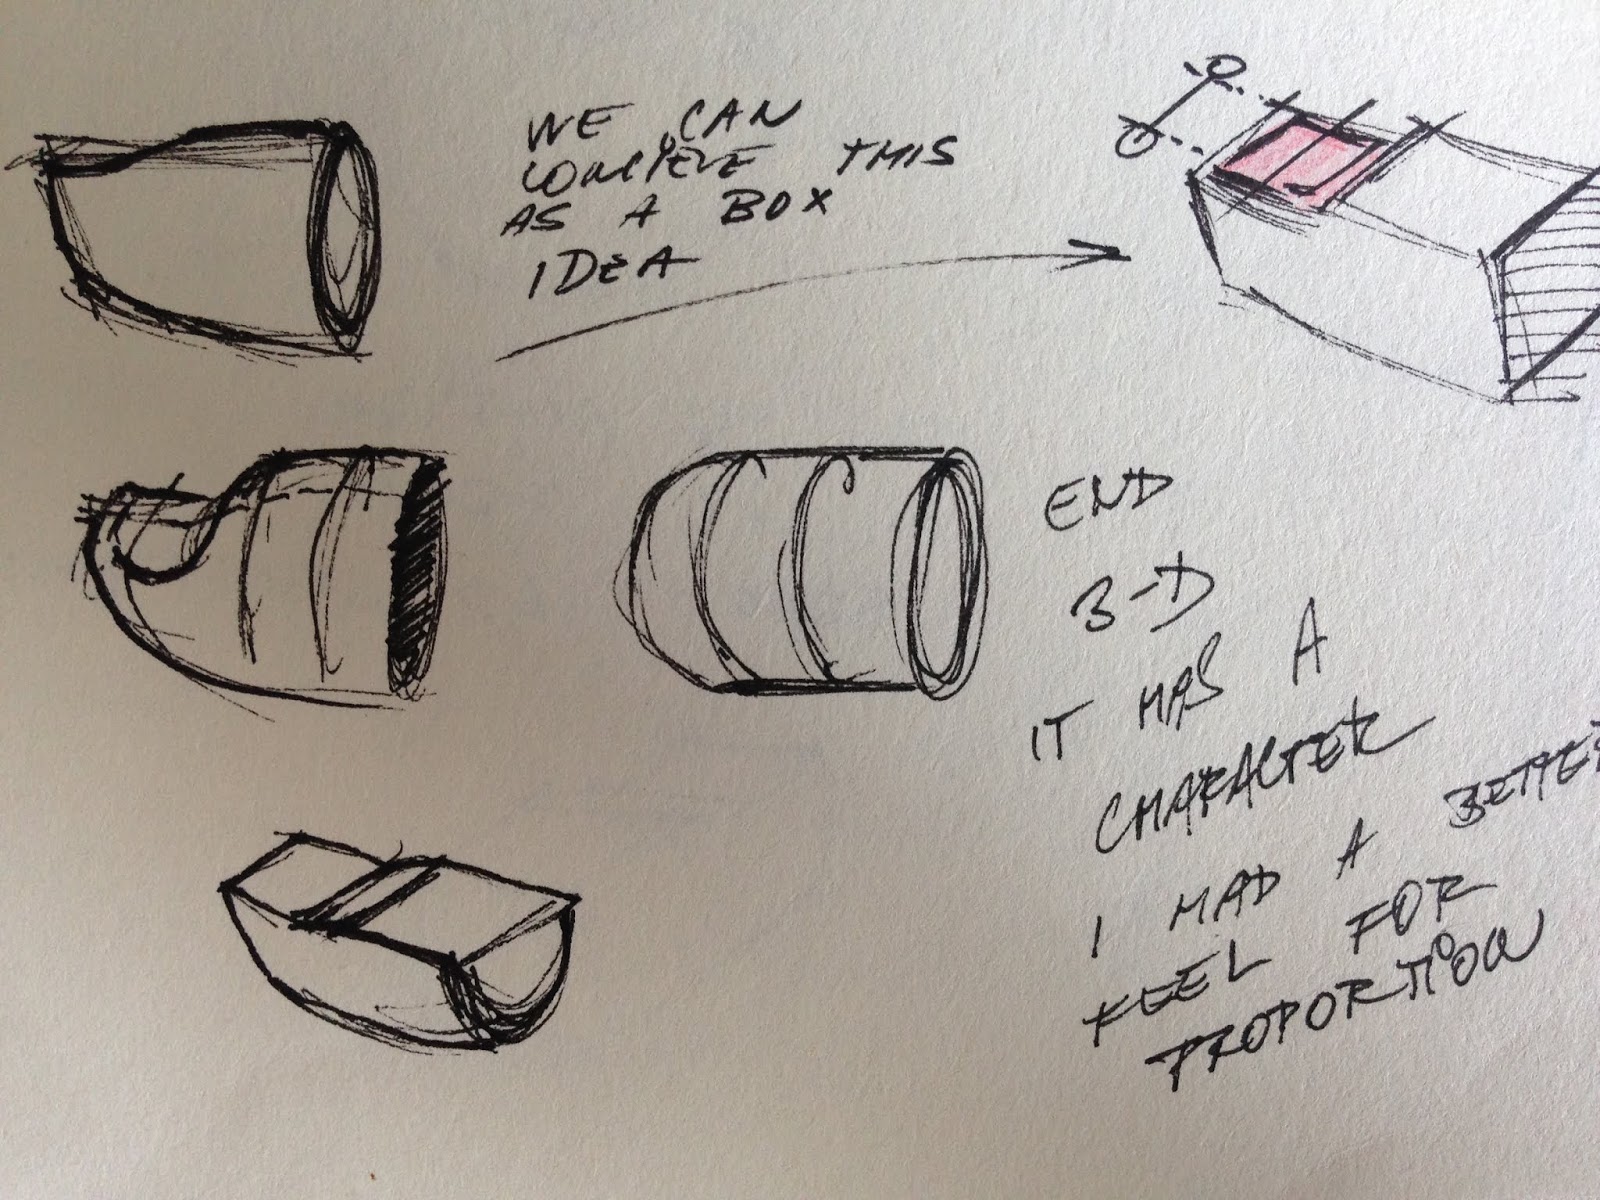 WE CAN
CONCIEVE THIS
AS A BOX
IDEA
END
3-D
IT HAS A
CHARACTER
I HAD A BETTER
FEEL FOR
PROPORTION